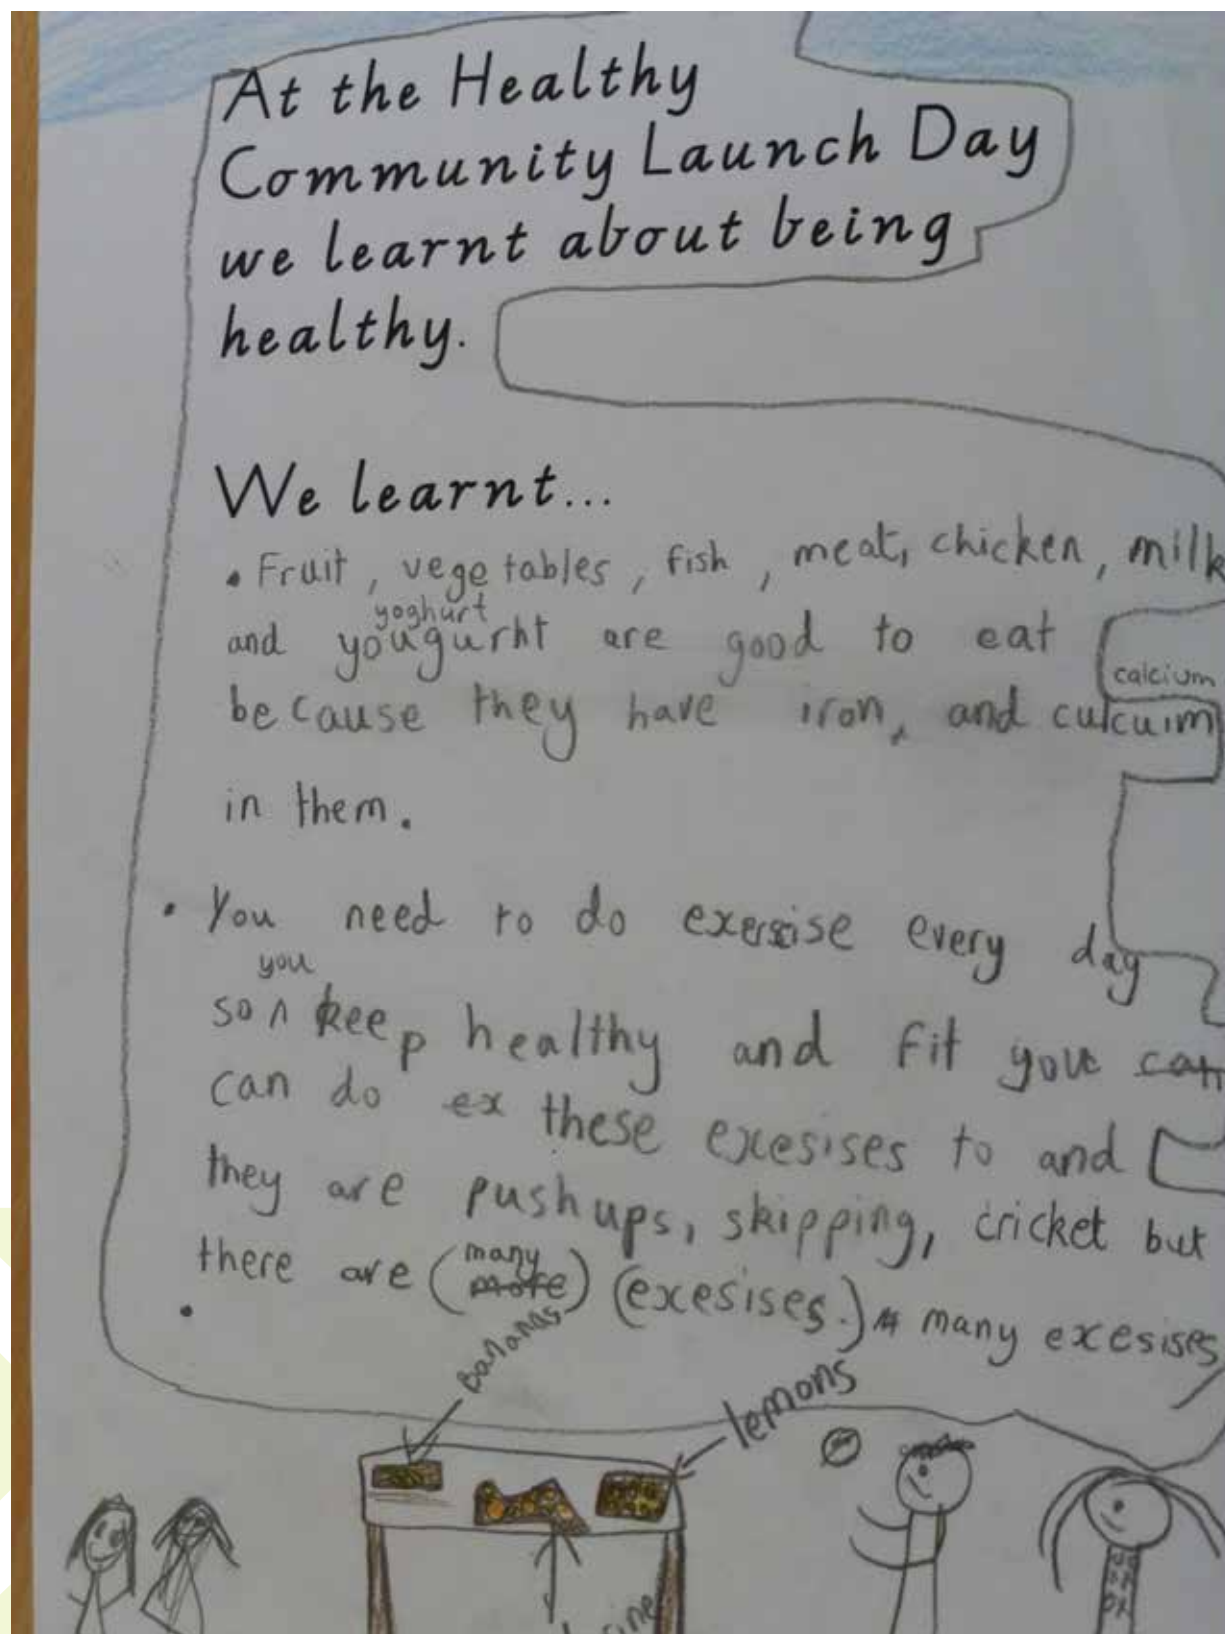 At the Healthy
Community Launch Day
we learnt about being
healthy.
We learnt...
• Fruit, vegetables, fish, meat, chicken, milk
yoghurt
and yougurht are good to eat
calcium
because they have iron, and culcuim
in them.
• You need to do exersise every day
you
so ∧ keep healthy and fit you can
can do ex these excesises to and
they are pushups, skipping, cricket but
many
there are (more) (excesises.) many excesises
•
Bananas
lemons